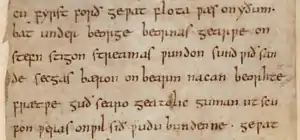 cū fyrſt forð gepat flota pæs on yðum.
bat under beorge beornas gearpe on
stefn stigon streamas pundon sund pið san
de secgas bæron on bearm nacan beorhte
frætpe guð searo geatolic guman ut scu
fon peras on pil sið pudu bundenne. gepat